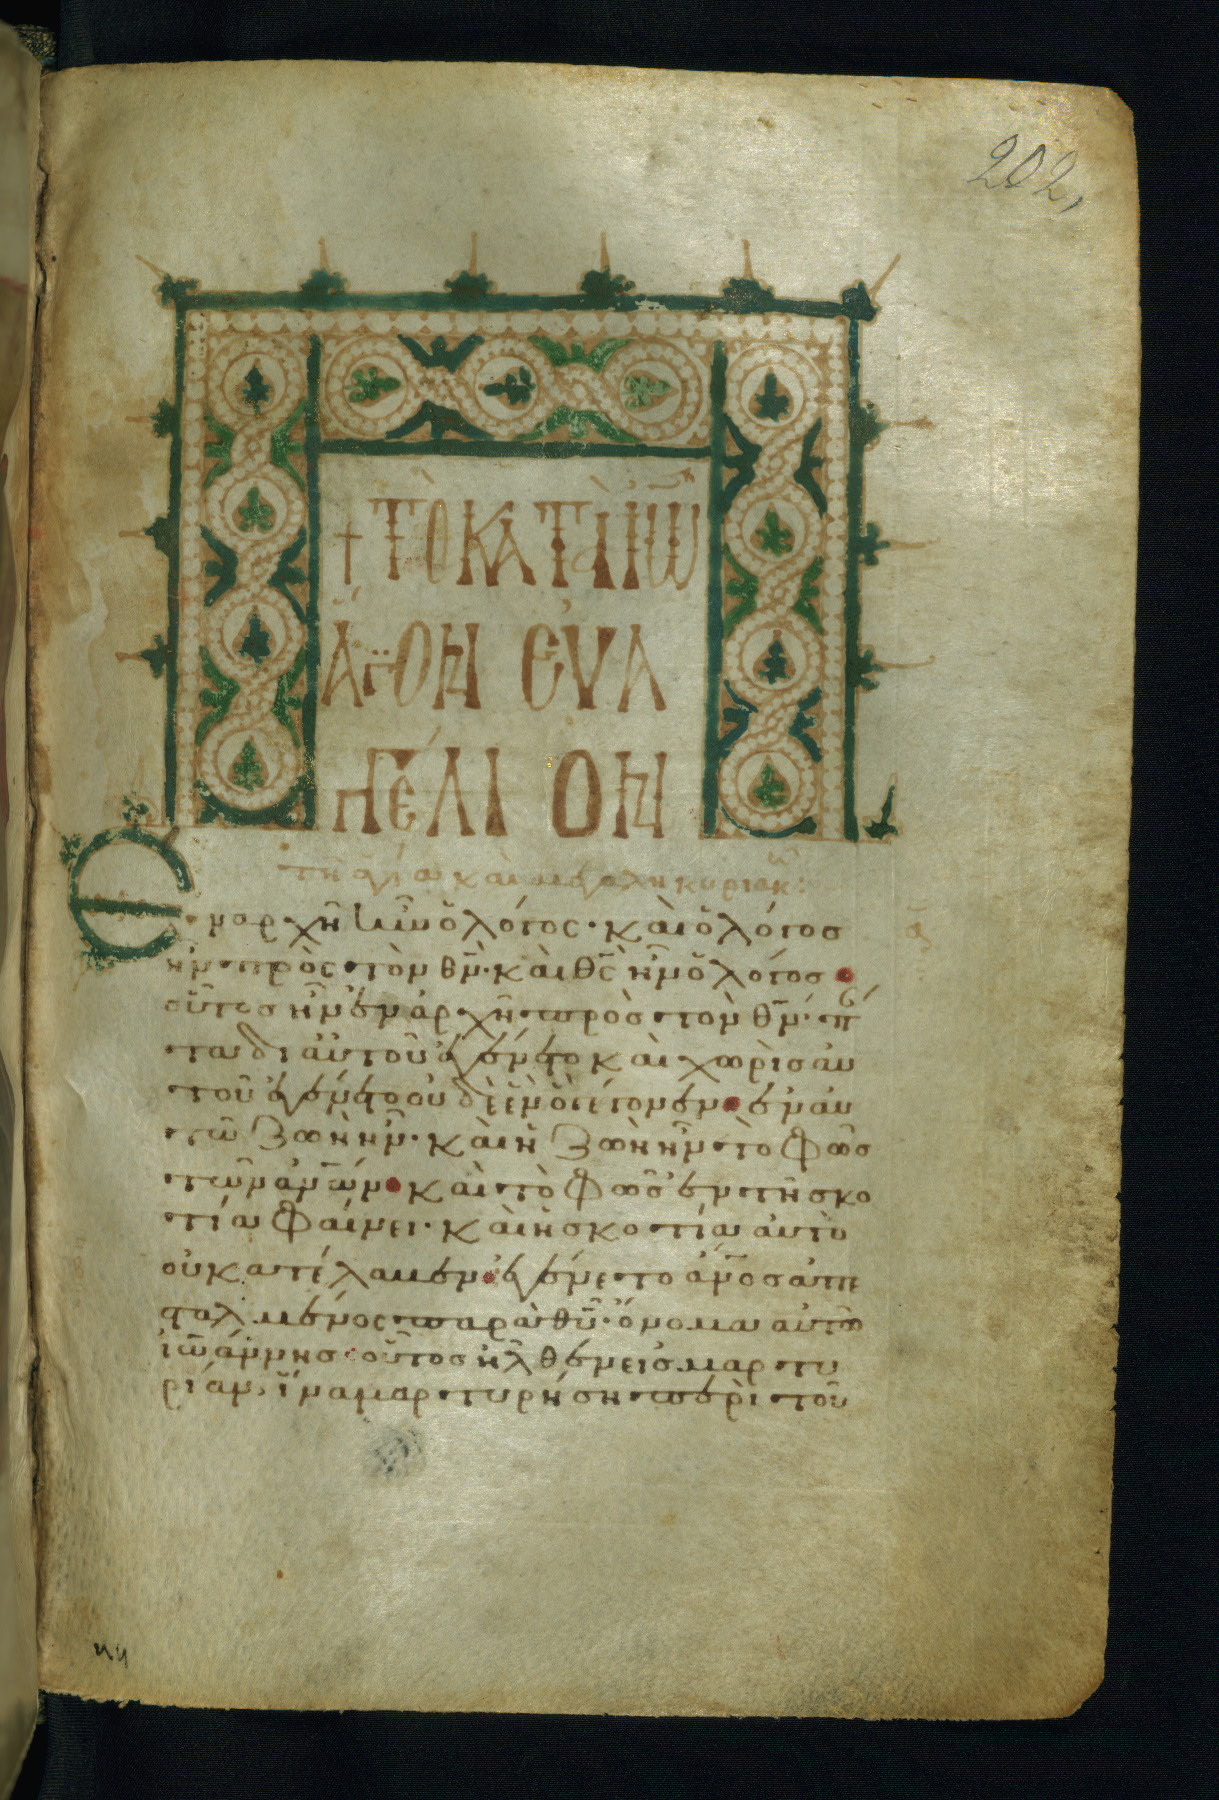 202,
† ΤῸ ΚΑΤᾺ ἸΩ
ἍΓΙΟΝ ΕὐΑ
ΓΓέΛΙΟΝ
τῆ ἁγία καὶ μεγάλη κυριακ:
Ἐν ἀρχῆ ἦν ὁ λόγος· καὶ ὁ λόγος
ἦν πρὸς τὸν θν̄· καὶ θς̄ ἦν ὁ λόγος
οὗτος ἦν ἐν ἀρχῆ πρὸς τὸν θν̄· πά
ντα δι αὐτοῦ ἐγένετο καὶ χωρὶς αὐ
τοῦ ἐγένετο οὐδὲ ἓν ὃ γέγονεν· ἐν αὐ
τῶ ζωὴ ἦν· καὶ ἡ ζωὴ ἦν τὸ φῶς
τῶν ἀν̄ων· καὶ τὸ φῶς ἐν τῆ σκο
τία φαίνει· καὶ ἡ σκοτία αὐτὸ
οὐ κατέλαβεν· ἐγένετο ἀν̄ος ἀπε
σταλμένος παρὰ θῦ· ὄνομα αὐτῶ
ἰωάννης· οὗτος ἦλθεν εἰς μαρτυ
ρίαν, ἵνα μαρτυρήση περὶ τοῦ